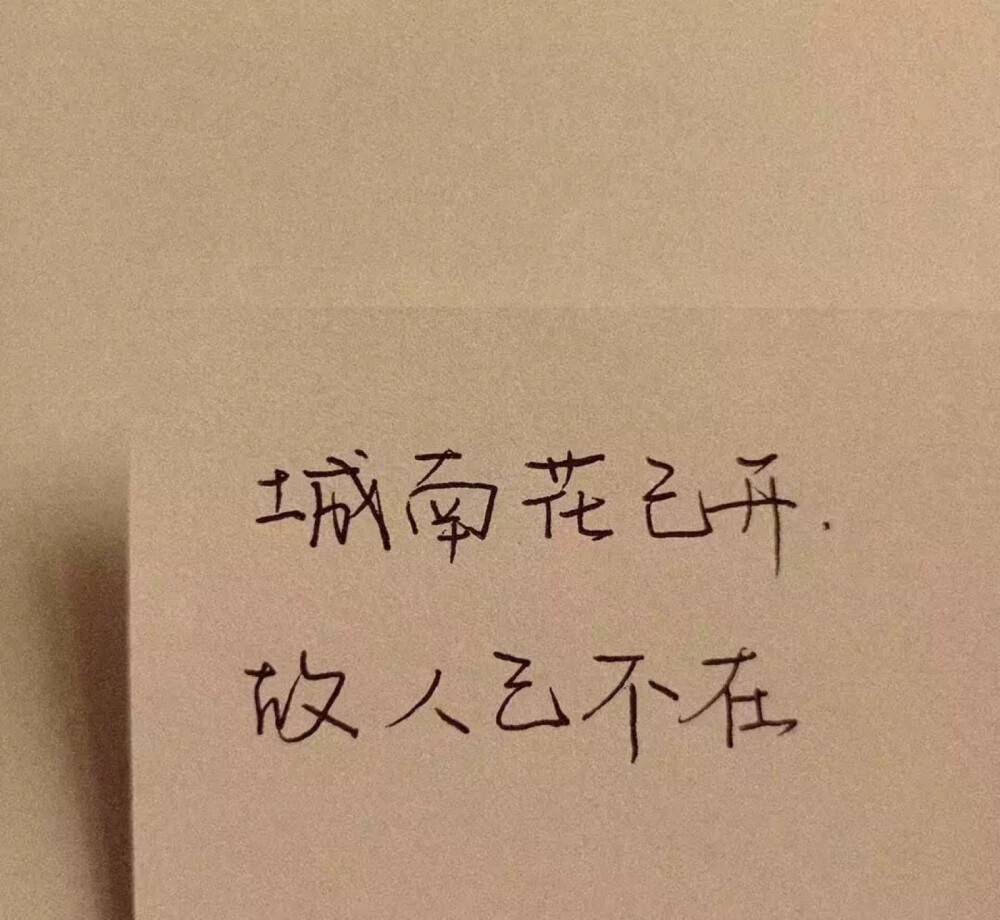 城南花已开.
故人已不在